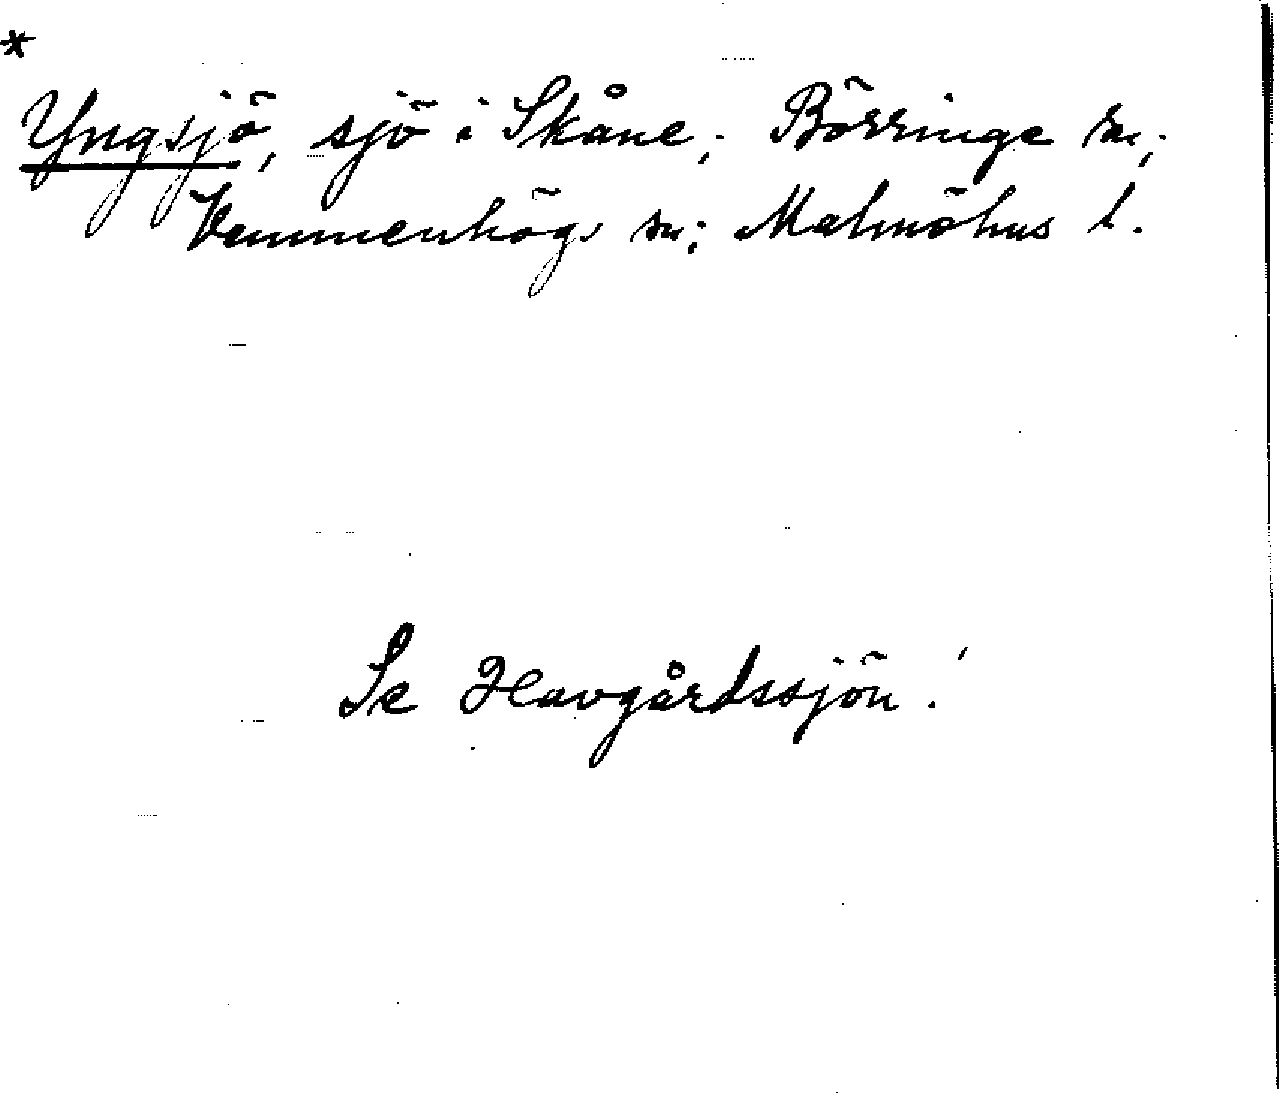 *
Yngsjö, sjö i Skåne; Börringe sn;
Vemmenhögs sn; Malmöhus l.
Se Havgårdssjön!